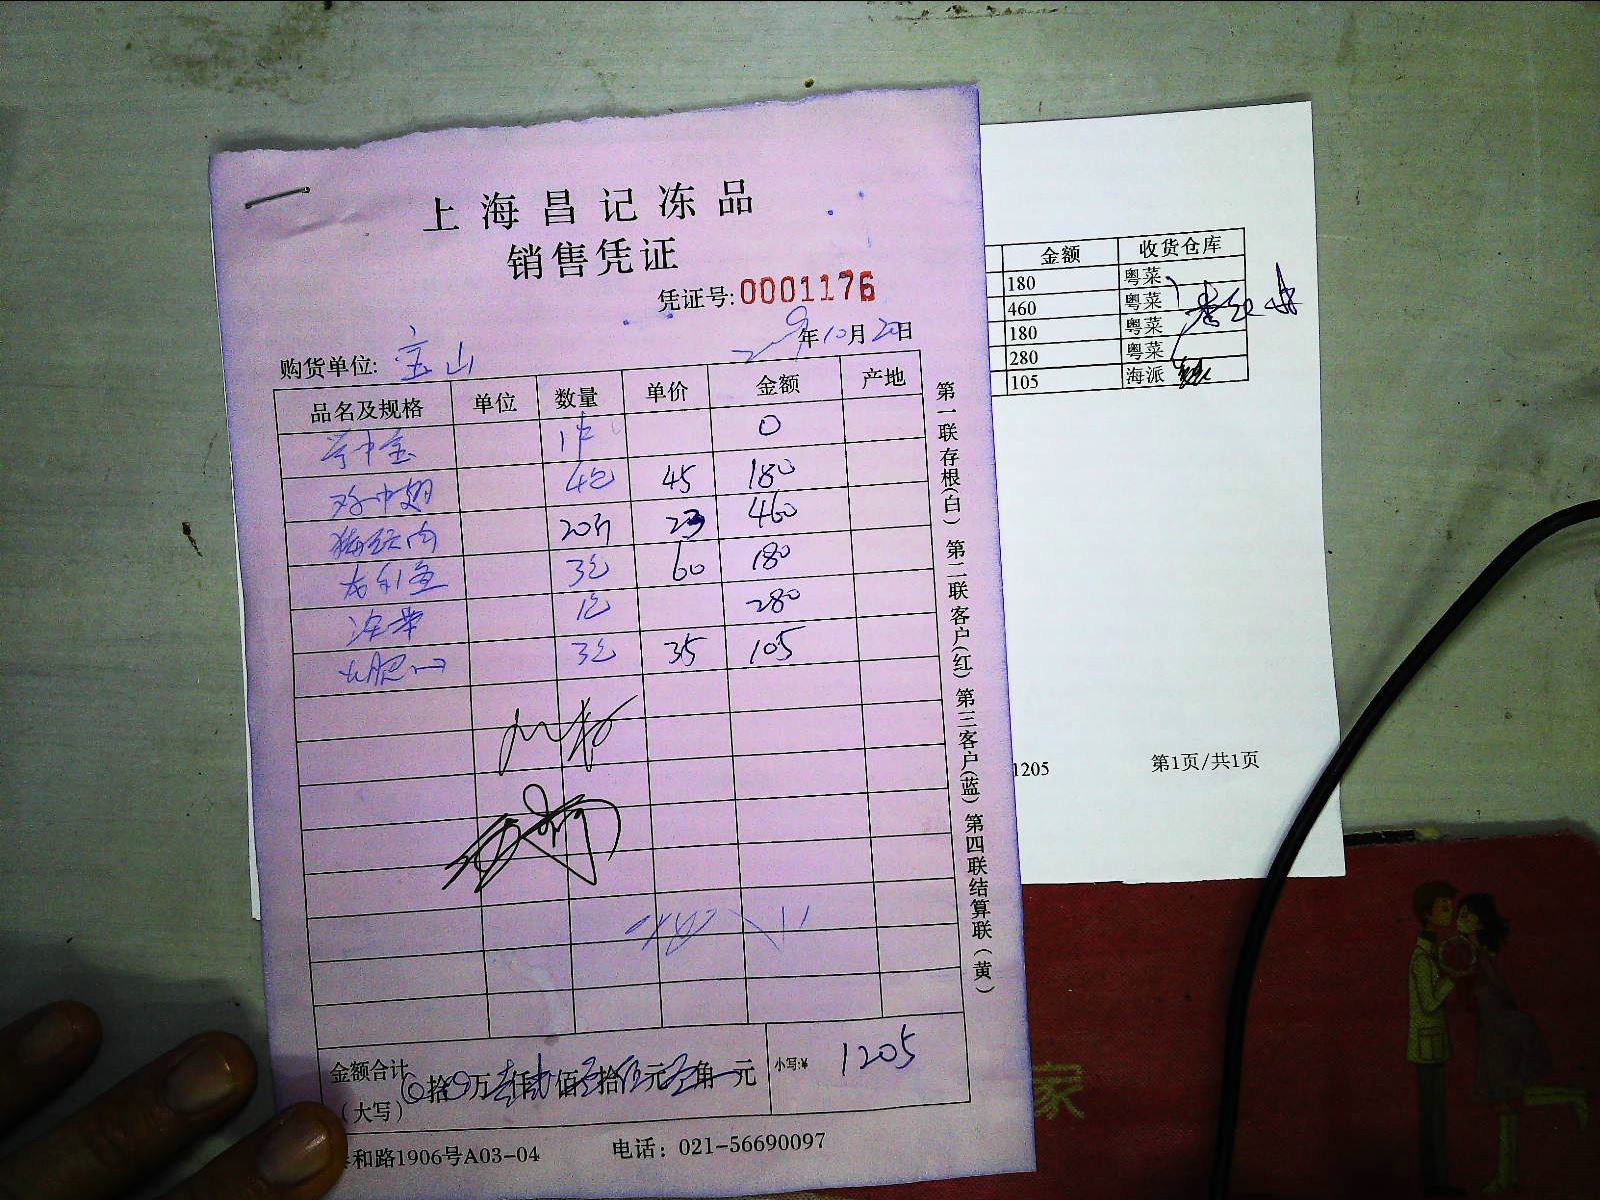 上海昌记冻品
销售凭证
凭证号: 0001176
年10月20日
购货单位: 宝山
品名及规格 单位 数量 单价 金额 产地
1件 0
鸡中翅 4包 45 180
猪颈肉 20斤 23 460
龙利鱼 3包 60 180
1包 280
3包 35 105
金额合计
（大写） 拾 万 仟 佰 拾 元 角 元 小写:¥ 1205
和路1906号A03-04 电话：021-56690097
第一联存根(白) 第二联客户(红) 第三客户(蓝) 第四联结算联(黄)
金额 收货仓库
180 粤菜
460 粤菜
180 粤菜
280 粤菜
105 海派
1205 第1页/共1页
家